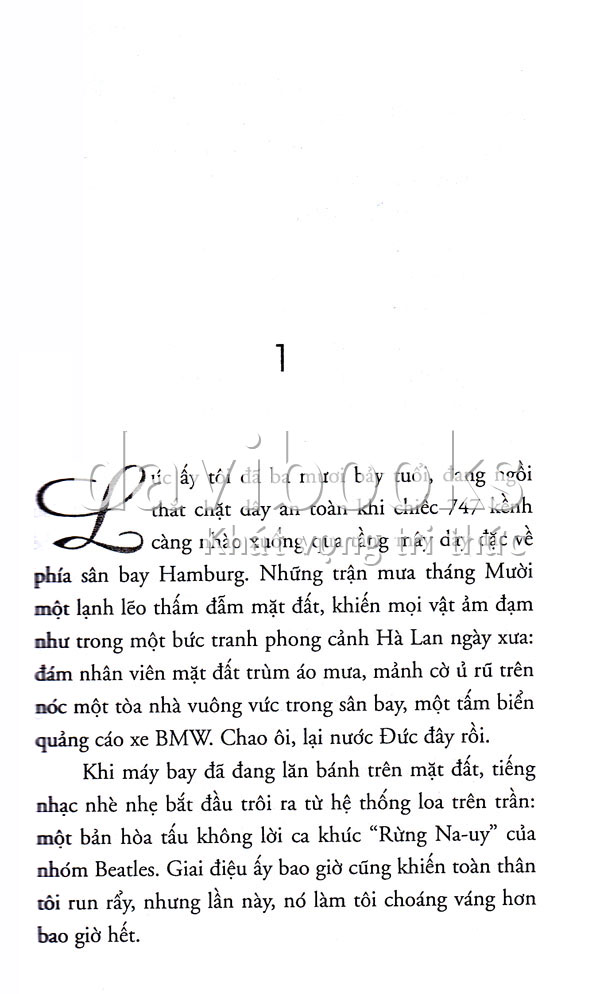 1
Lúc ấy tôi đã ba mươi bảy tuổi, đang ngồi
thắt chặt dây an toàn khi chiếc 747 kềnh
càng nhào xuống qua tầng mây dày đặc về
phía sân bay Hamburg. Những trận mưa tháng Mười
một lạnh lẽo thấm đẫm mặt đất, khiến mọi vật ảm đạm
như trong một bức tranh phong cảnh Hà Lan ngày xưa:
đám nhân viên mặt đất trùm áo mưa, mảnh cờ ủ rũ trên
nóc một tòa nhà vuông vức trong sân bay, một tấm biển
quảng cáo xe BMW. Chao ôi, lại nước Đức đây rồi.
Khi máy bay đã đang lăn bánh trên mặt đất, tiếng
nhạc nhè nhẹ bắt đầu trôi ra từ hệ thống loa trên trần:
một bản hòa tấu không lời ca khúc “Rừng Na-uy” của
nhóm Beatles. Giai điệu ấy bao giờ cũng khiến toàn thân
tôi run rẩy, nhưng lần này, nó làm tôi choáng váng hơn
bao giờ hết.
davibooks
Khát vọng tri thức